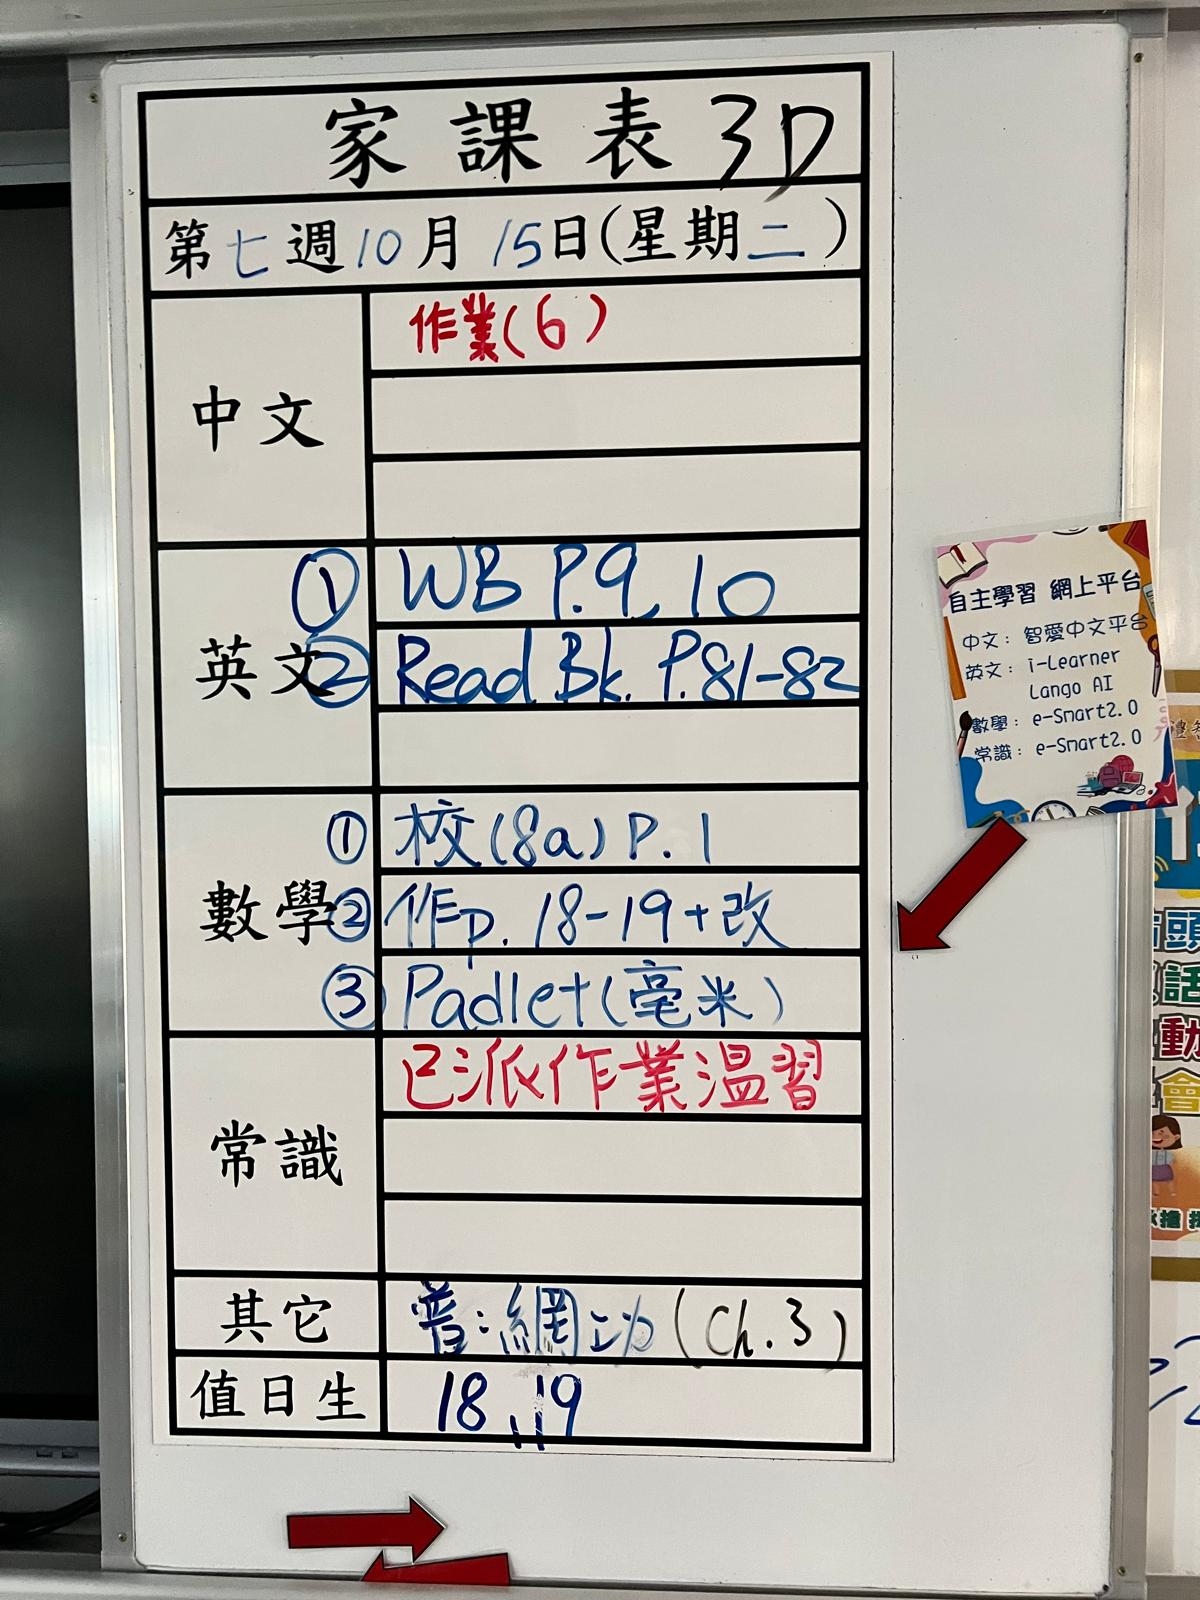 家課表 3D
第七週10月15日(星期二)
中文
作業(6)
英文
① WB P.9, 10
② Read. Bk. P.81-82
數學
① 校(8a) P.1
② 作p. 18-19+改
③ Padlet(毫米)
常識
已派作業温習
其它
普:網功(Ch.3)
值日生
18, 19
自主學習 網上平台
中文: 智愛中文平台
英文: i-Learner
Lango AI
數學: e-Smart2.0
常識: e-Smart2.0
頭
話
動
會